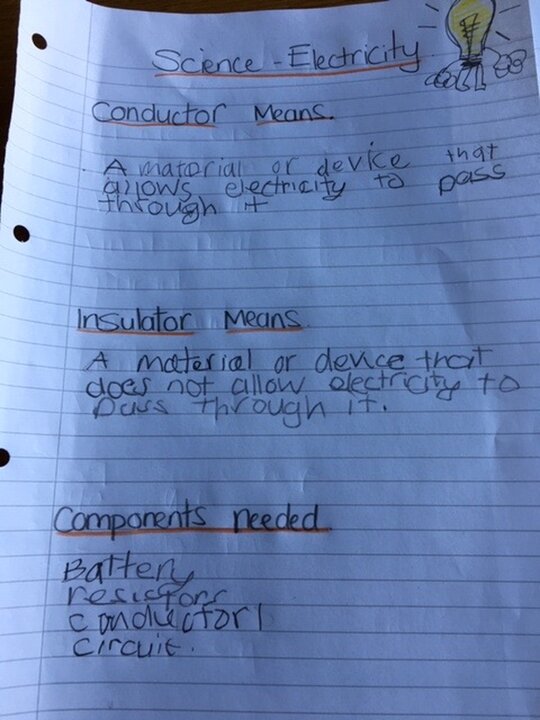 Science - Electricity
Conductor Means.
A material or device that
allows electricity to pass
through it
Insulator Means
A material or device that
does not allow electricity to
pass through it.
Components needed
Battery
resistors
conductor
circuit.